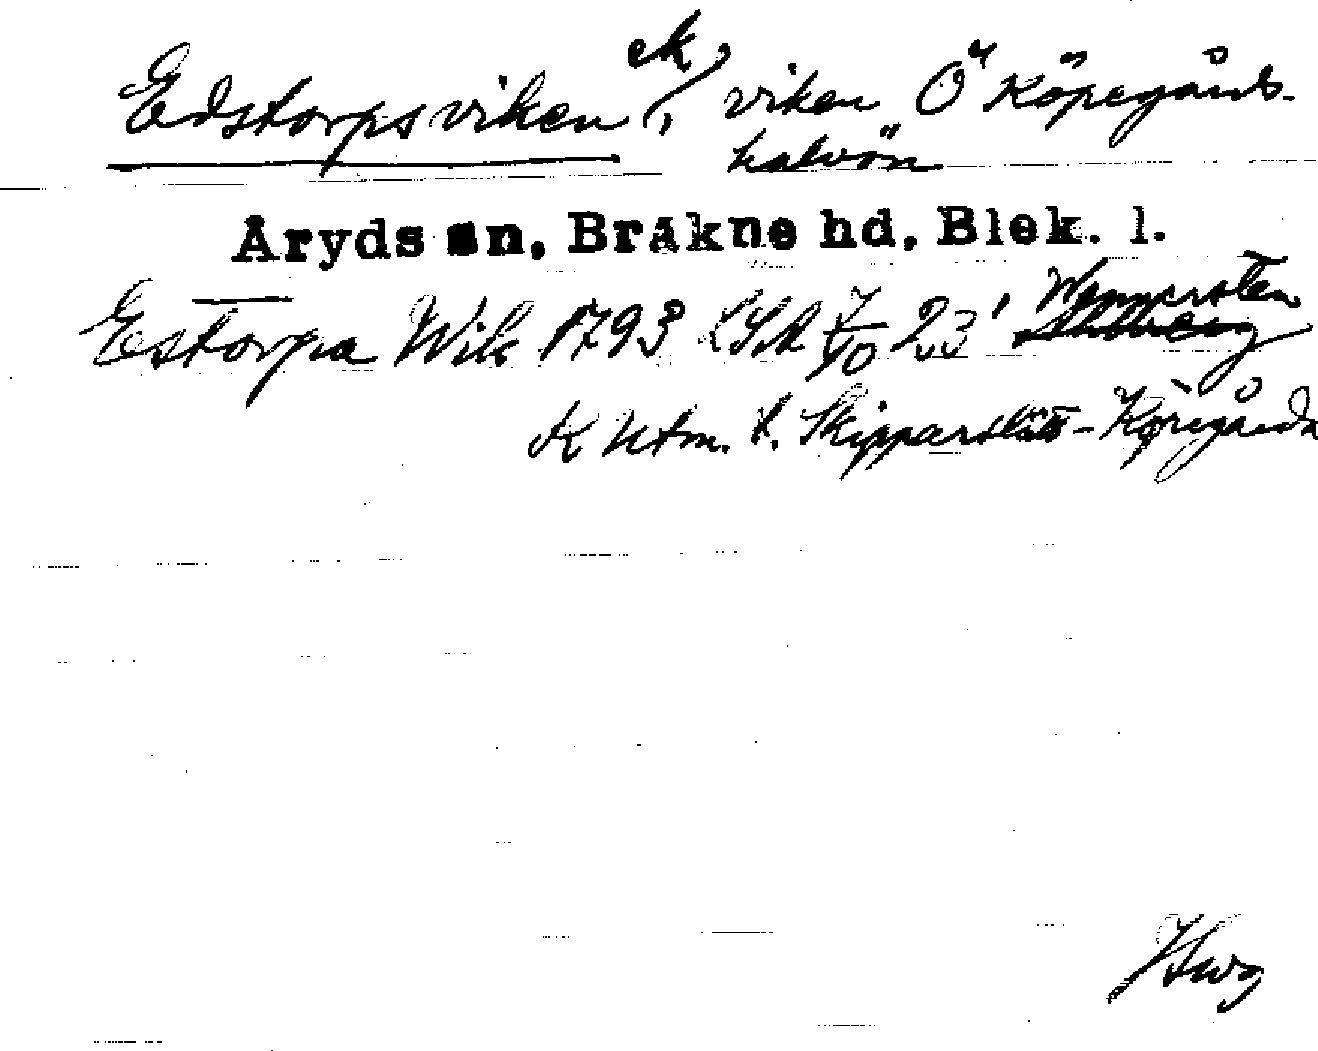 Edstorpsviken, ek, viken Ö Köpegårds-
halvön
Åryds sn, Bräkne hd, Blek. l.
Estorpa Wik 1793 LSA 7/10 23' Wennersten
K Utm. t. Skipparslätt - Köregårda